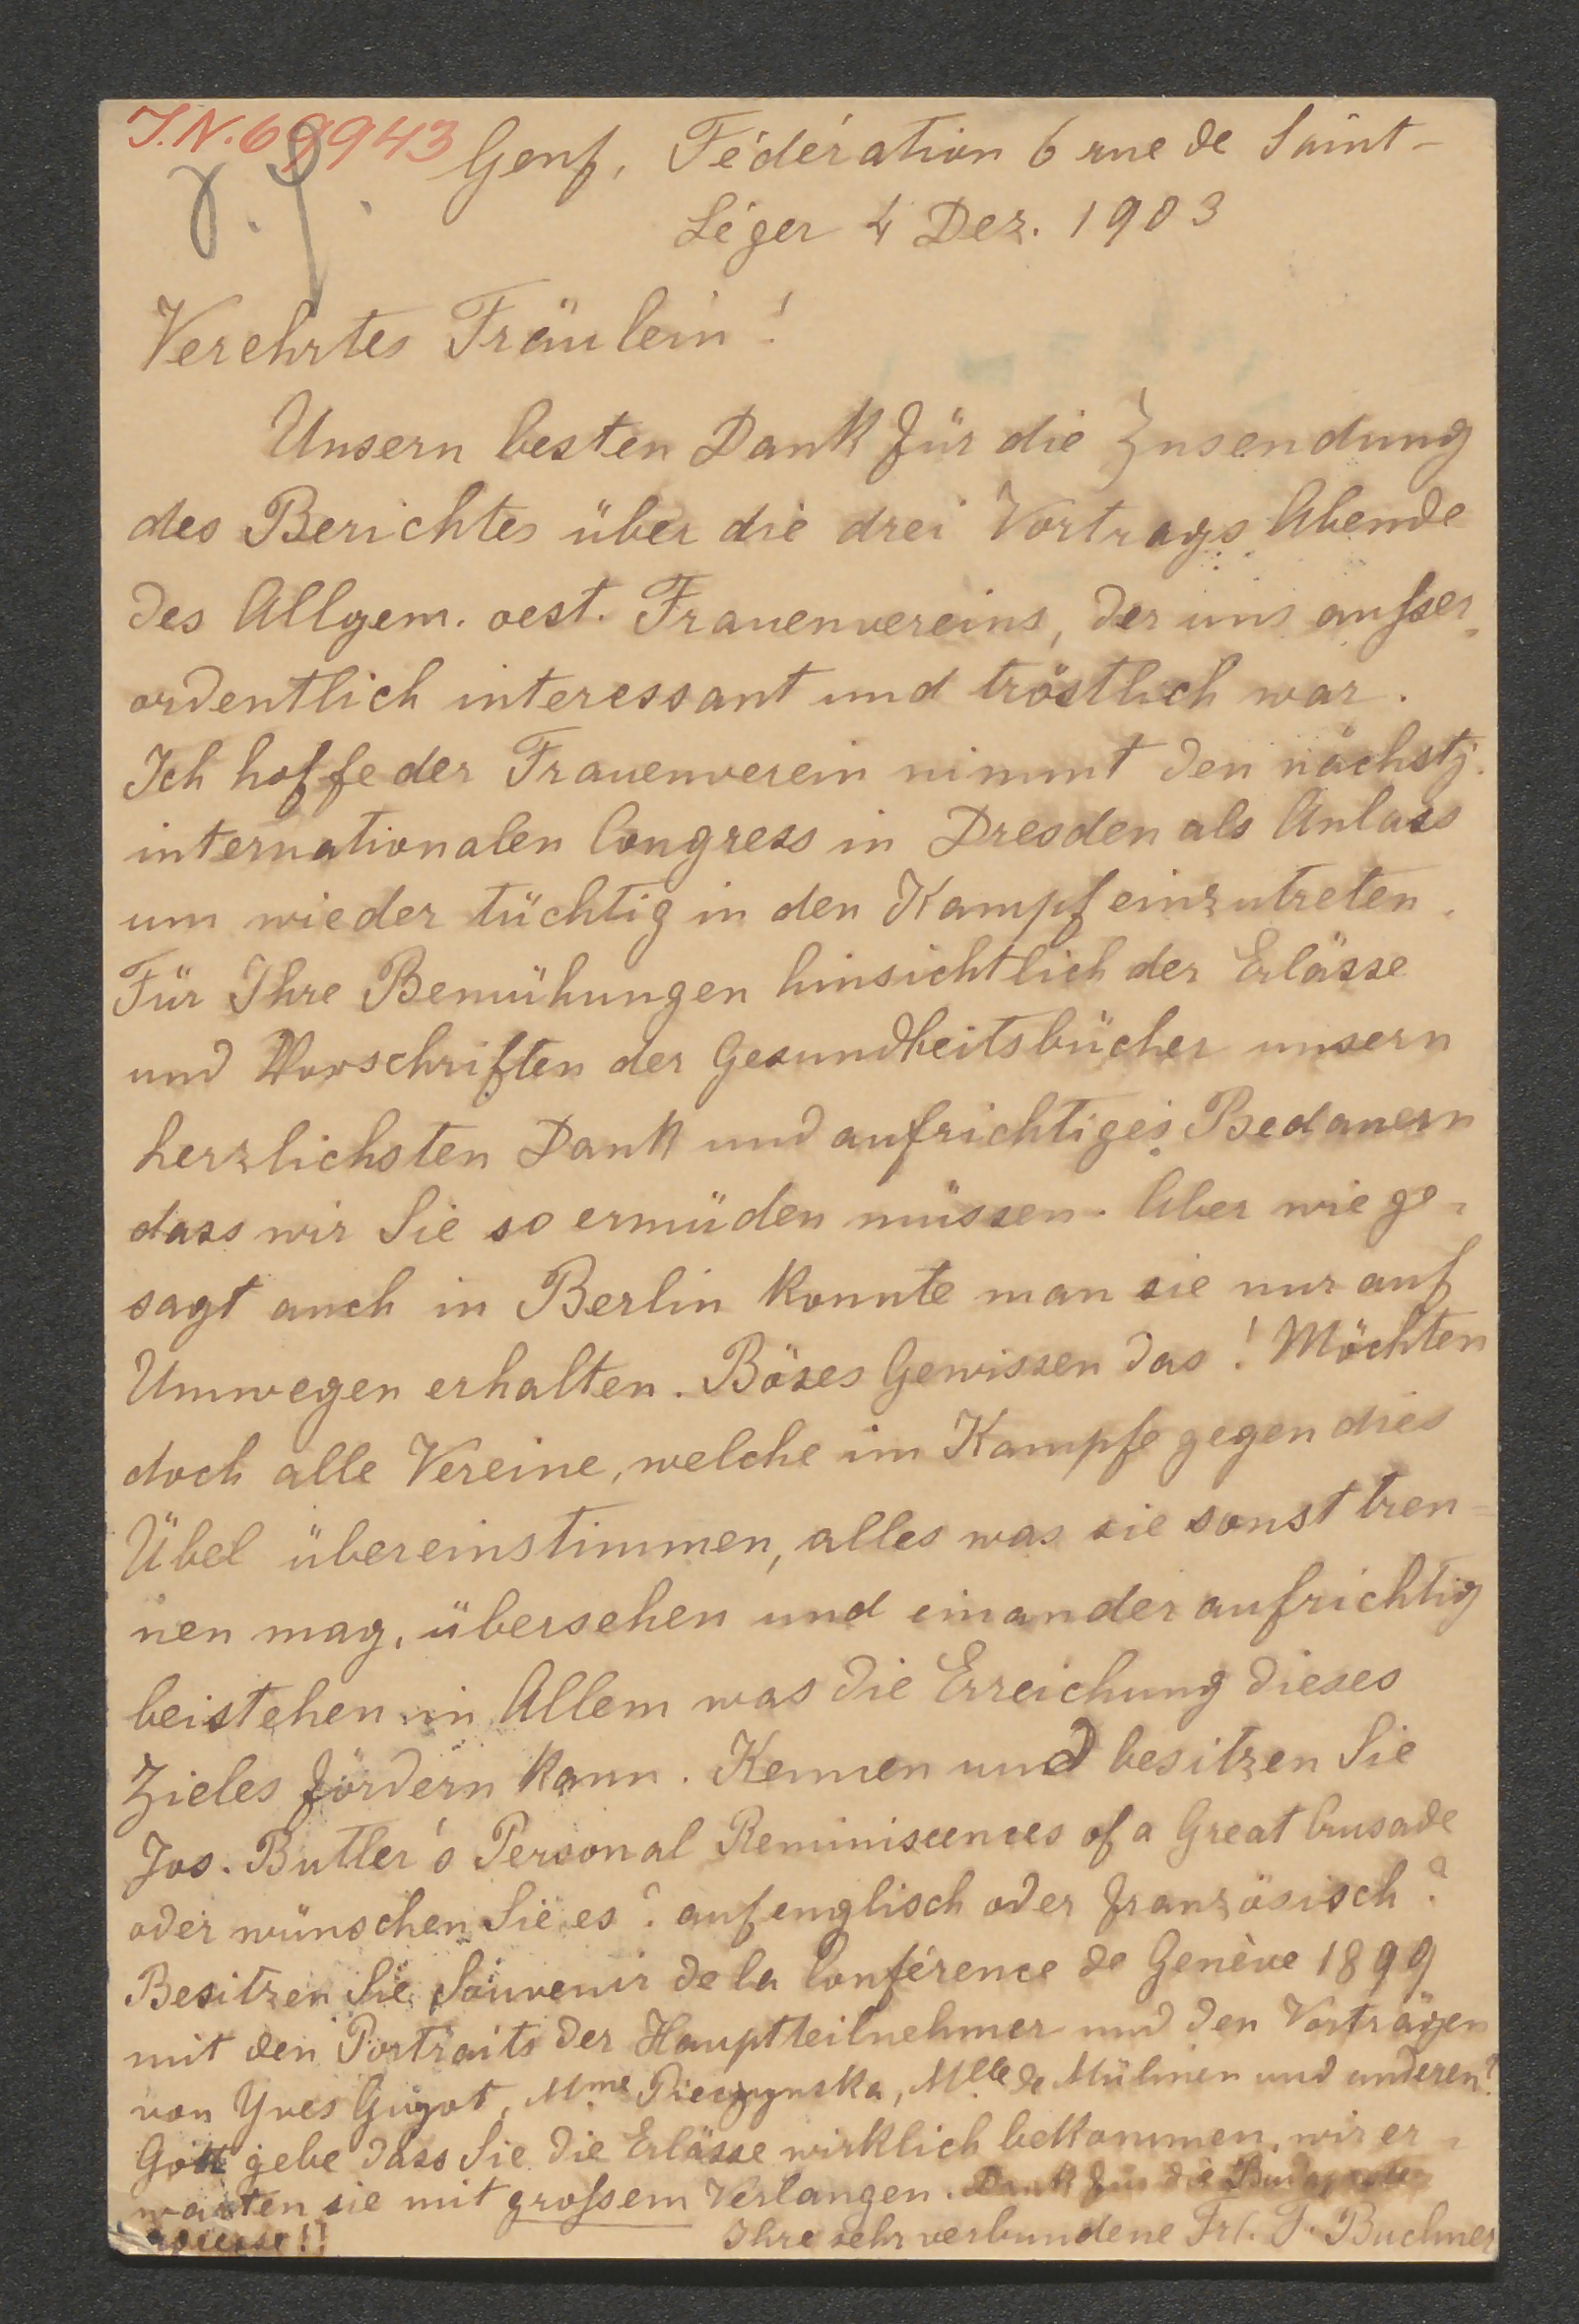 I.N. 69943
Genf, Fédération 6 rue de Saint-
Léger 4 Dez. 1903
Verehrtes Fräulein!
Unsern besten Dank für die Zusendung
des Berichtes über die drei Vortrags Abende
des Allgem. oest. Frauenvereins, der uns ausser-
ordentlich interessant und tröstlich war.
Ich hoffe der Frauenverein nimmt den nächstj.
internationalen Congress in Dresden als Anlass
um wieder tüchtig in den Kampf einzutreten.
Für Ihre Bemühungen hinsichtlich der Erlässe
und Vorschriften der Gesundheitsbücher unsern
herzlichsten Dank und aufrichtiges Bedauern
dass wir Sie so ermüden müssen. Aber wie ge-
sagt auch in Berlin konnte man sie nur auf
Umwegen erhalten. Böses Gewissen das! Möchten
doch alle Vereine, welche im Kampfe gegen dies
Übel übereinstimmen, alles was sie sonst tren-
nen mag, übersehen und einander aufrichtig
beistehen in Allem was die Erreichung dieses
Zieles fördern kann. Kennen und besitzen Sie
Jos. Butler's Personal Reminiscences of a Great Crusade
oder wünschen Sie es? auf englisch oder französisch?
Besitzen Sie Souvenir de la Conférence de Genève 1899
mit den Portraits der Hauptteilnehmer und den Vorträgen
von Yves Guyot, Mme Pieczynska, Mlle de Mülinen und anderen?
Gott gebe dass Sie die Erlässe wirklich bekommen, wir er-
warten sie mit grossem Verlangen. Dank für die Budapester
Adresse!!
Ihre sehr verbundene Frl. F. Buchner